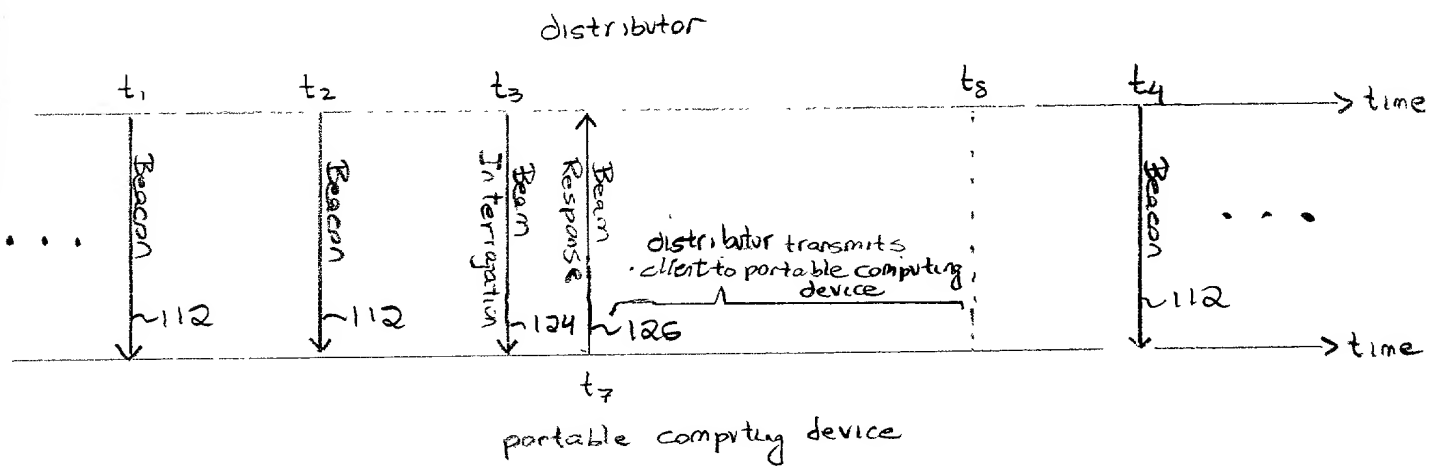 distributor
t1 t2 t3 t8 t4
time
Beacon
Beacon
Beam
Interrogation
Beam
Response
Beacon
distributor transmits
client to portable computing
device
112 112 124 126 112
time
t7
portable computing device